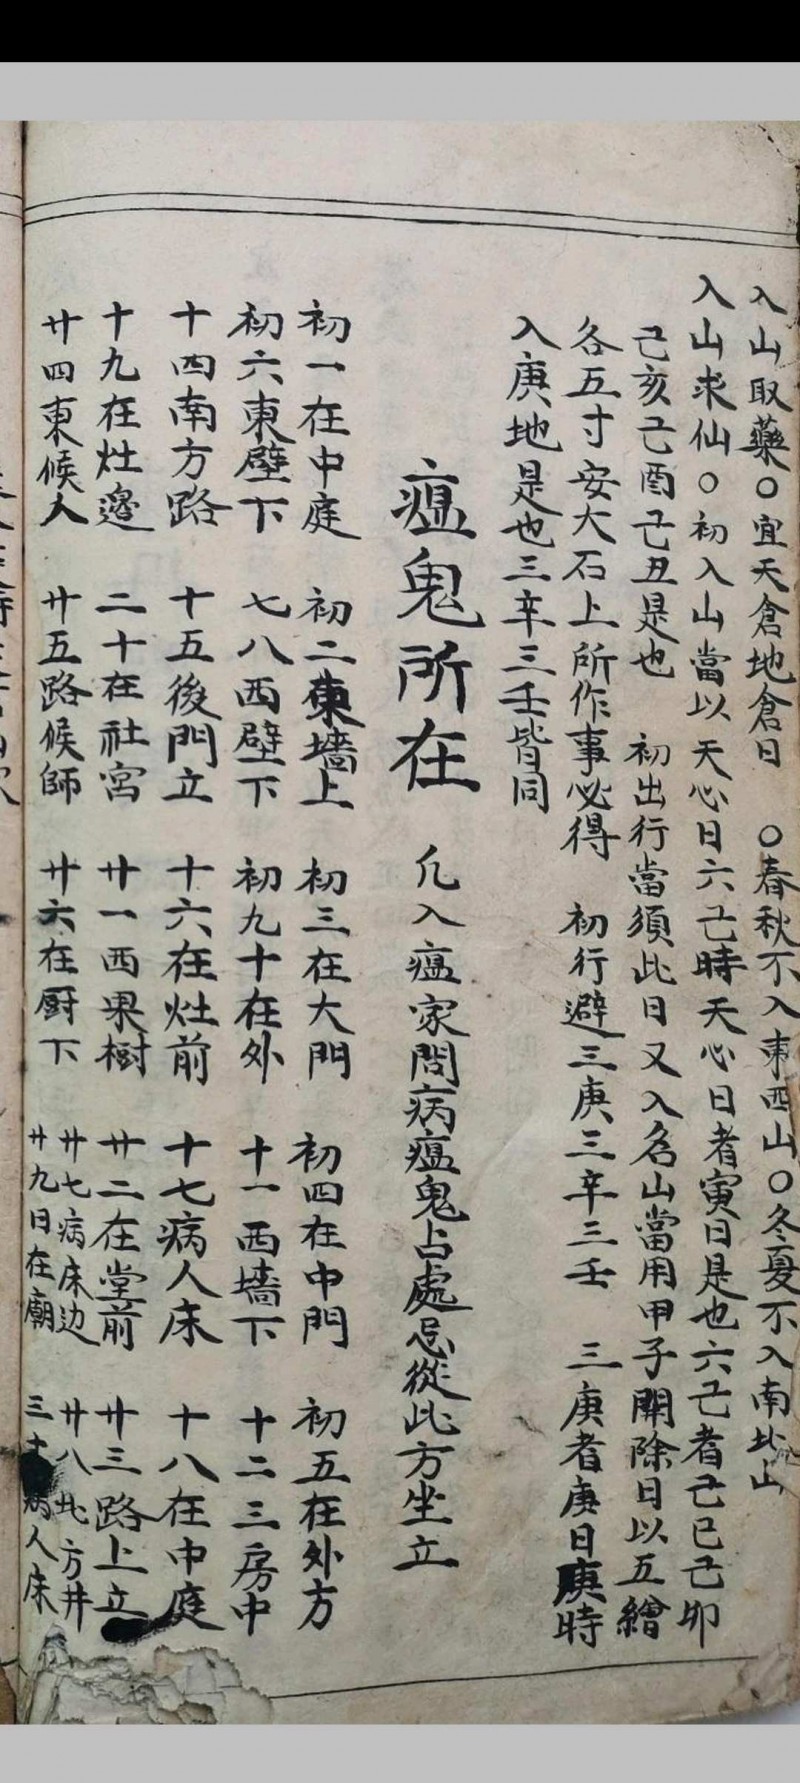 入山取藥○宜天倉地倉日 ○春秋不入東西山○冬夏不入南北山
入山求仙○初入山當以天心日六己時天心日者寅日是也六己者己巳己卯
己亥己酉己丑是也 初出行當須此日又入名山當用甲子開除日以五繒
各五寸安大石上所作事必得 初行避三庚三辛三壬 三庚者庚日庚時
入庚地是也三辛三壬皆同
瘟鬼所在 凡入瘟家問病瘟鬼占處忌從此方坐立
初一在中庭 初二東墻上 初三在大門 初四在中門 初五在外方
初六東壁下 七八西壁下 初九十在外 十一西墻下 十二三房中
十四南方路 十五後門立 十六在灶前 十七病人床 十八在中庭
十九在灶邊 二十在社宮 廿一西果樹 廿二在堂前 廿三路上立
廿四東候人 廿五路候師 廿六在厨下 廿七病床边 廿八北方井
廿九日在廟 三十病人床